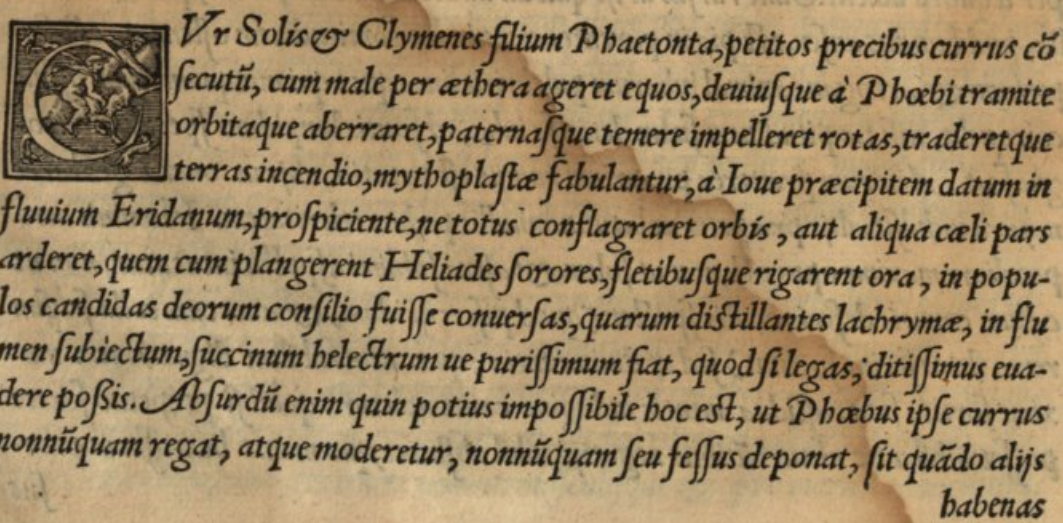 CVr Solis & Clymenes filium Phaetonta, petitos precibus currus cõ
ſecutũ, cum male per æthera ageret equos, deuiuſque à Phœbi tramite
orbitaque aberraret, paternaſque temere impelleret rotas, traderetque
terras incendio, mythoplaſtæ fabulantur, à Ioue præcipitem datum in
fluuium Eridanum, proſpiciente, ne totus conflagraret orbis, aut aliqua cæli pars
arderet, quem cum plangerent Heliades ſorores, fletibuſque rigarent ora, in popu-
los candidas deorum conſilio fuiſſe conuerſas, quarum diſtillantes lachrymæ, in flu
men ſubiectum, ſuccinum helectrum ue puriſſimum fiat, quod ſi legas, ditiſſimus eua-
dere poßis. Abſurdũ enim quin potius impoſſibile hoc eſt, ut Phœbus ipſe currus
nonnũquam regat, atque moderetur, nonnũquam ſeu feſſus deponat, ſit quãdo alijs
habenas